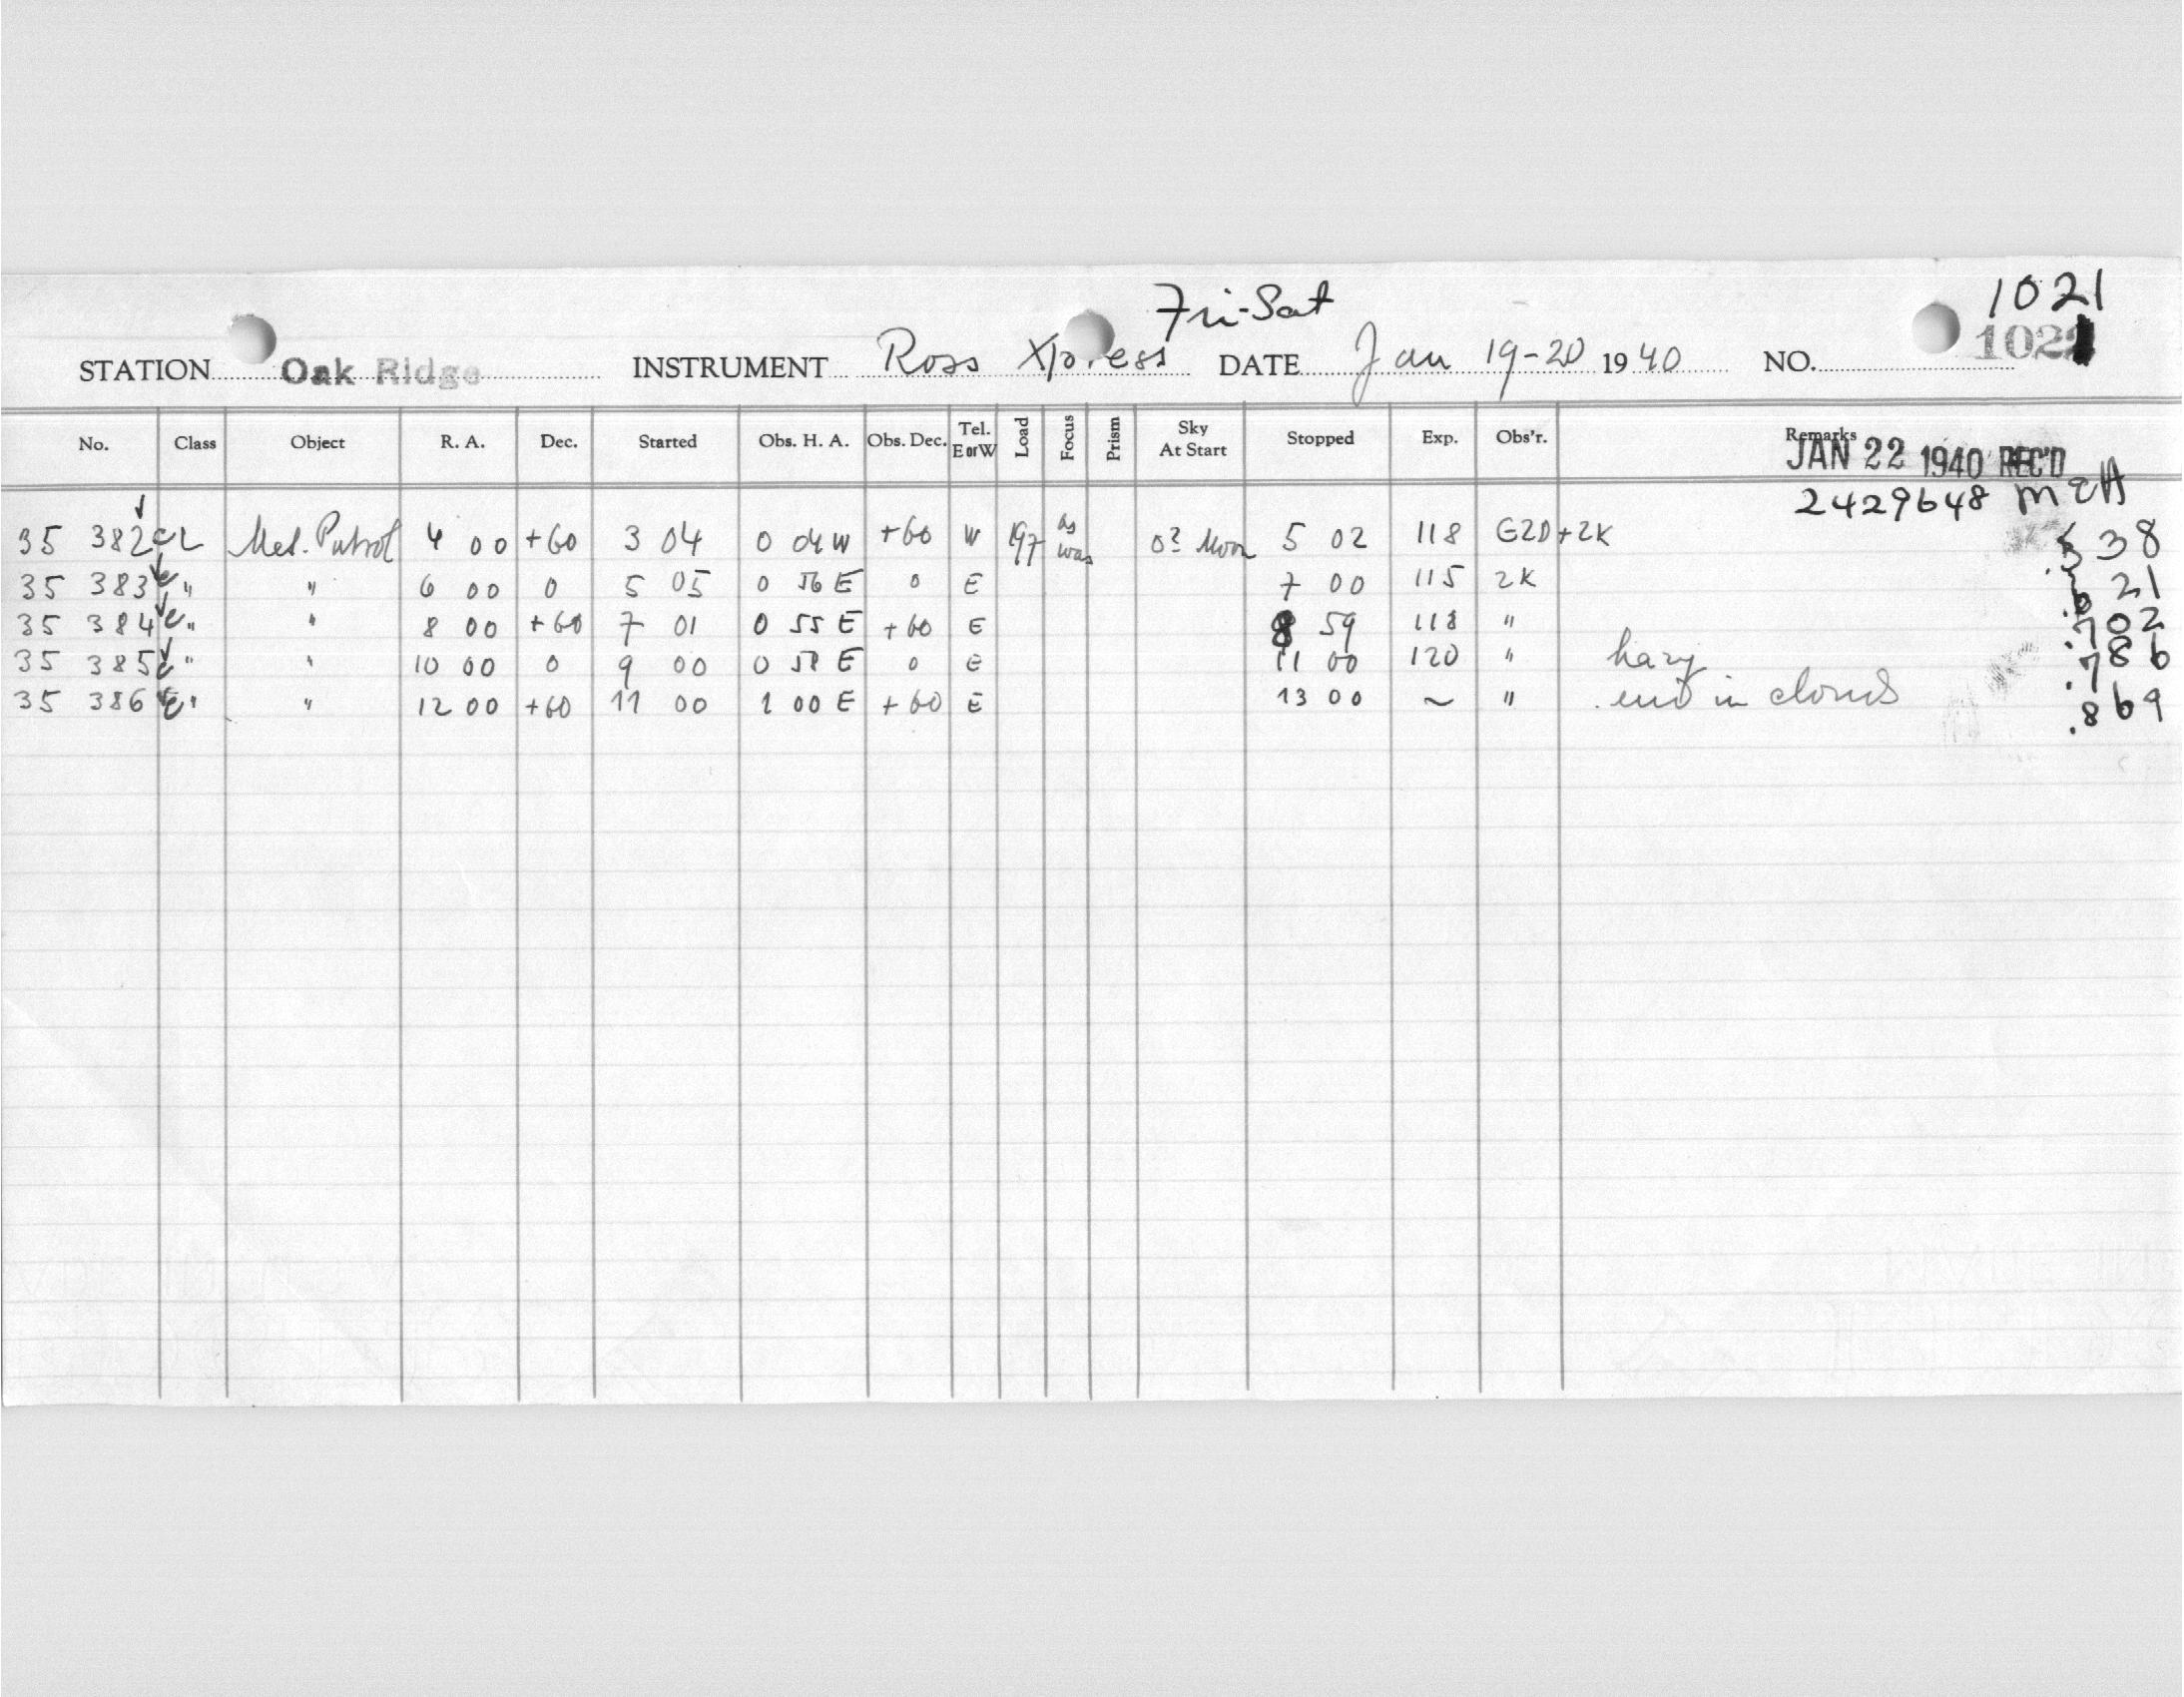 1021
Fri-Sat
STATION Oak Ridge INSTRUMENT Ross Xpress DATE Jan 19-20 1940 NO. 1021
No. Class Object R. A. Dec. Started Obs. H. A. Obs. Dec. Tel. E or W Load Focus Prism Sky At Start Stopped Exp. Obs'r. Remarks
JAN 22 1940 REC'D
2429648 McA
35 382 CL Met. Patrol 4 00 +60 3 04 0 04 W +60 W 197 as was Moon 5 02 118 G2D+2K .538
35 383 " " 6 00 0 5 05 0 56 E 0 E 7 00 115 2K .621
35 384 " " 8 00 +60 7 01 0 55 E +60 E 8 59 118 " .702
35 385 " " 10 00 0 9 00 0 58 E 0 E 11 00 120 " hazy .786
35 386 " " 12 00 +60 11 00 1 00 E +60 E 13 00 ~ " end in clouds .869